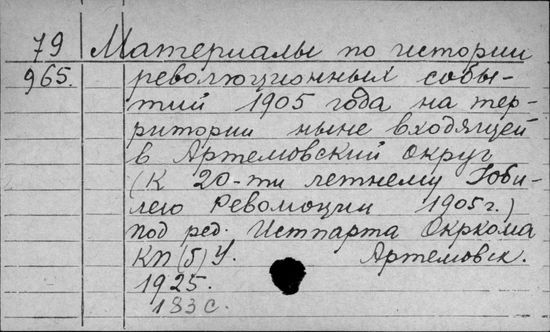 79 Материалы по истории
965. революционных собы-
тий 1905 года на тер-
ритории ныне входящей
в Артемовский округ
(К 20-ти летнему Юби-
лею Революции 1905 г.)
под ред. Истпарта Окркома
КП(б)У. Артемовск.
1925.
183 с.